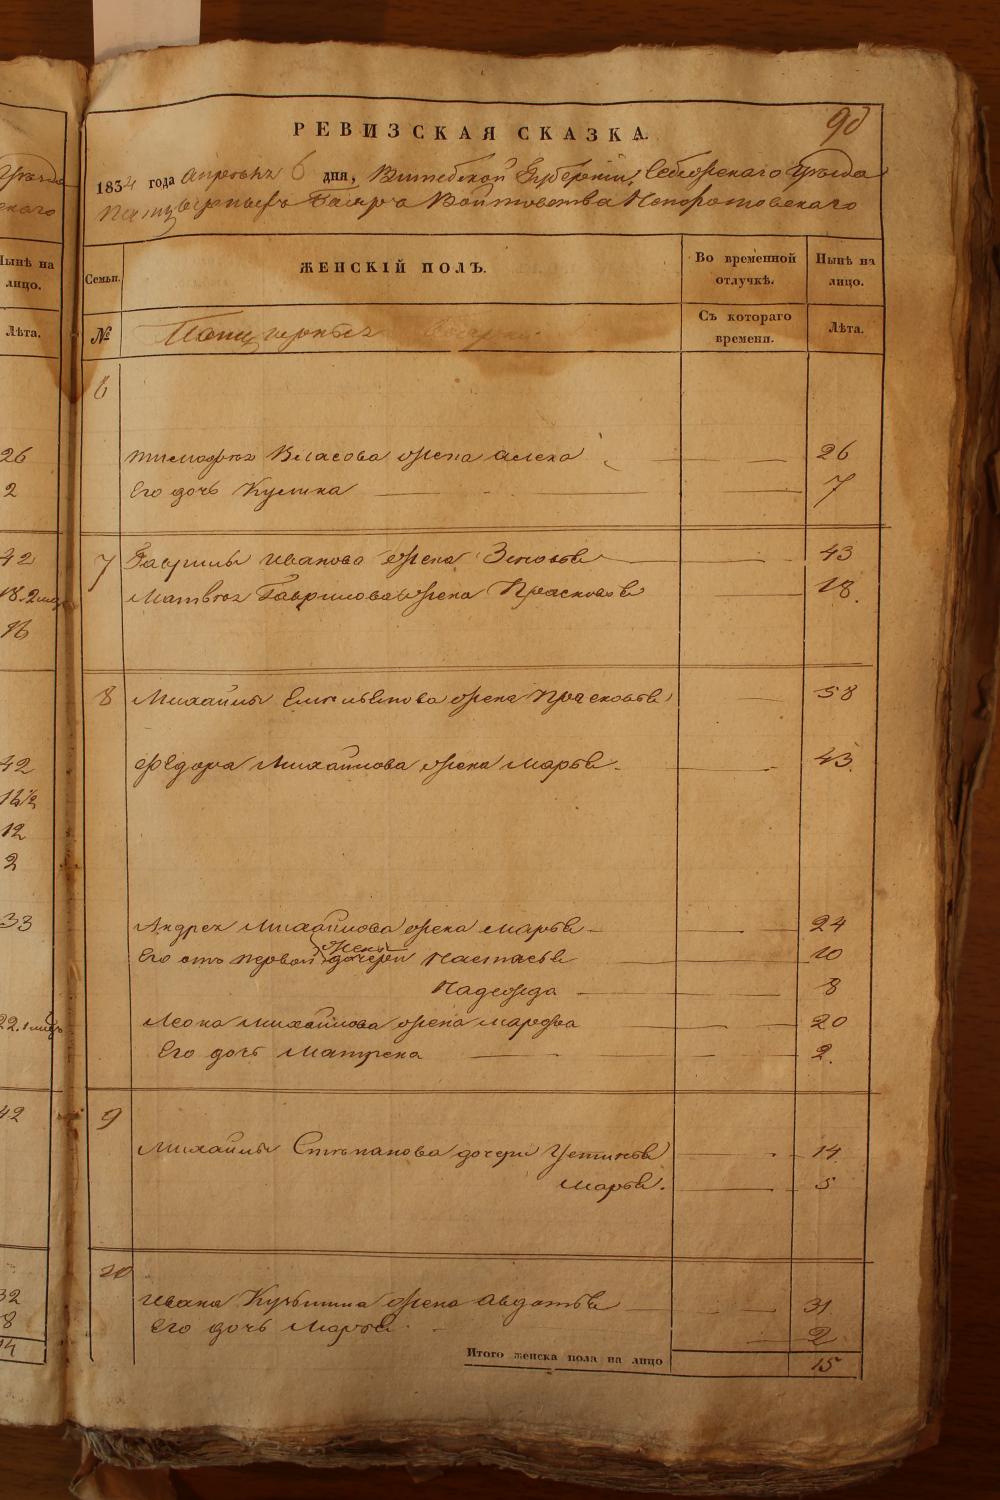 90
РЕВИЗСКАЯ СКАЗКА.
1834 года апреля 6 дня, Витебской Губернiи, Себежскаго Уѣзда
Войтовства Непоротовскаго
Семьи.
ЖЕНСКIЙ ПОЛЪ.
Во временной отлучкѣ.
Нынѣ на лицо.
№
Съ котораго времени.
Лѣта.
6
Тимофея Власова жена Алена 26
Его дочь Кулина 7
7 Гаврилы Иванова жена Зиновья 43
Матвея Гаврилова жена Прасковья 18.
8 Михайлы Емельянова жена Прасковья 58
Федора Михайлова жена Марья 43.
Андрея Михайлова жена Марья 24
жены
Его отъ первой дочери Настасья 10
Надежда 8
Леона Михайлова жена Марфа 20
Его дочь Матрена 2.
9
Михайлы Степанова дочери Устинья 14
Марья. 5
10
Ивана Кузьмина жена Авдотья 31
Его дочь Марья 2
Итого женска пола на лицо 15
Нынѣ на лицо.
Лѣта.
26
2
42
16
42
12
2
33
42
32
8
14